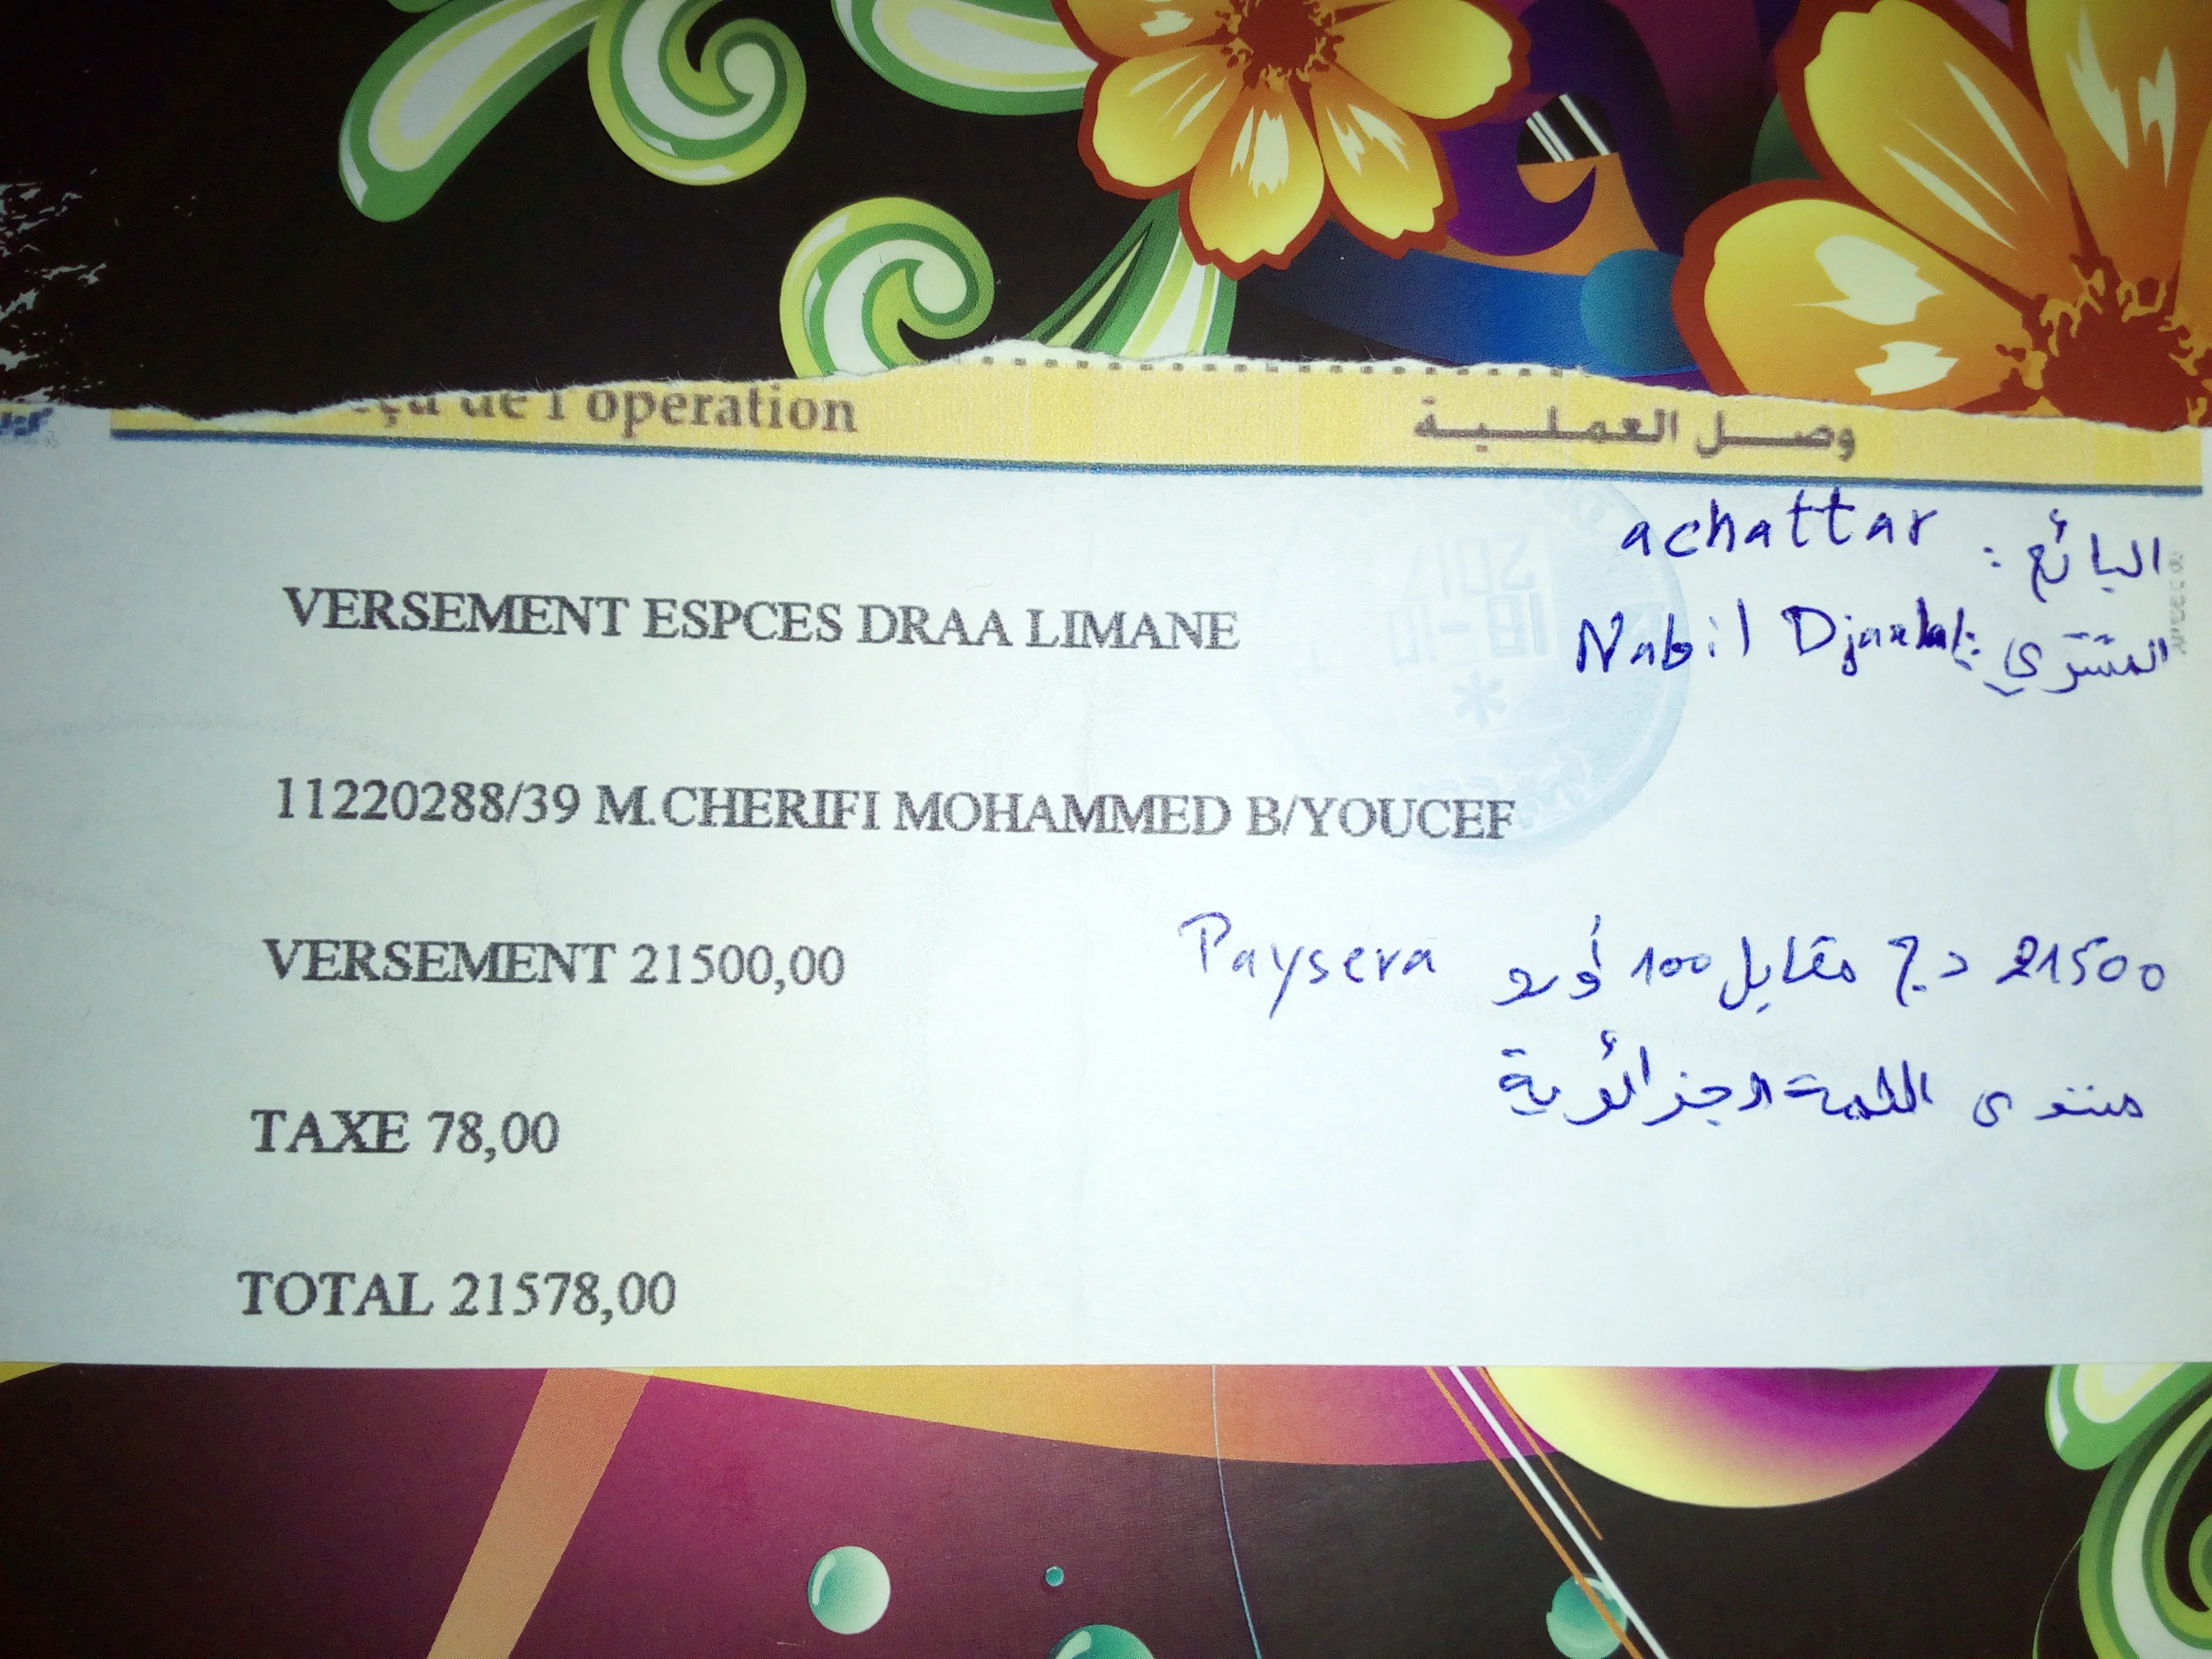 çu de l'opération وصل العملية
البائع : achattar
VERSEMENT ESPCES DRAA LIMANE
المشتري : Nabil
11220288/39 M.CHERIFI MOHAMMED B/YOUCEF
VERSEMENT 21500,00
21500 د.ج مقابل 100 أورو Paysera
منتدى اللمة الجزائرية
TAXE 78,00
TOTAL 21578,00